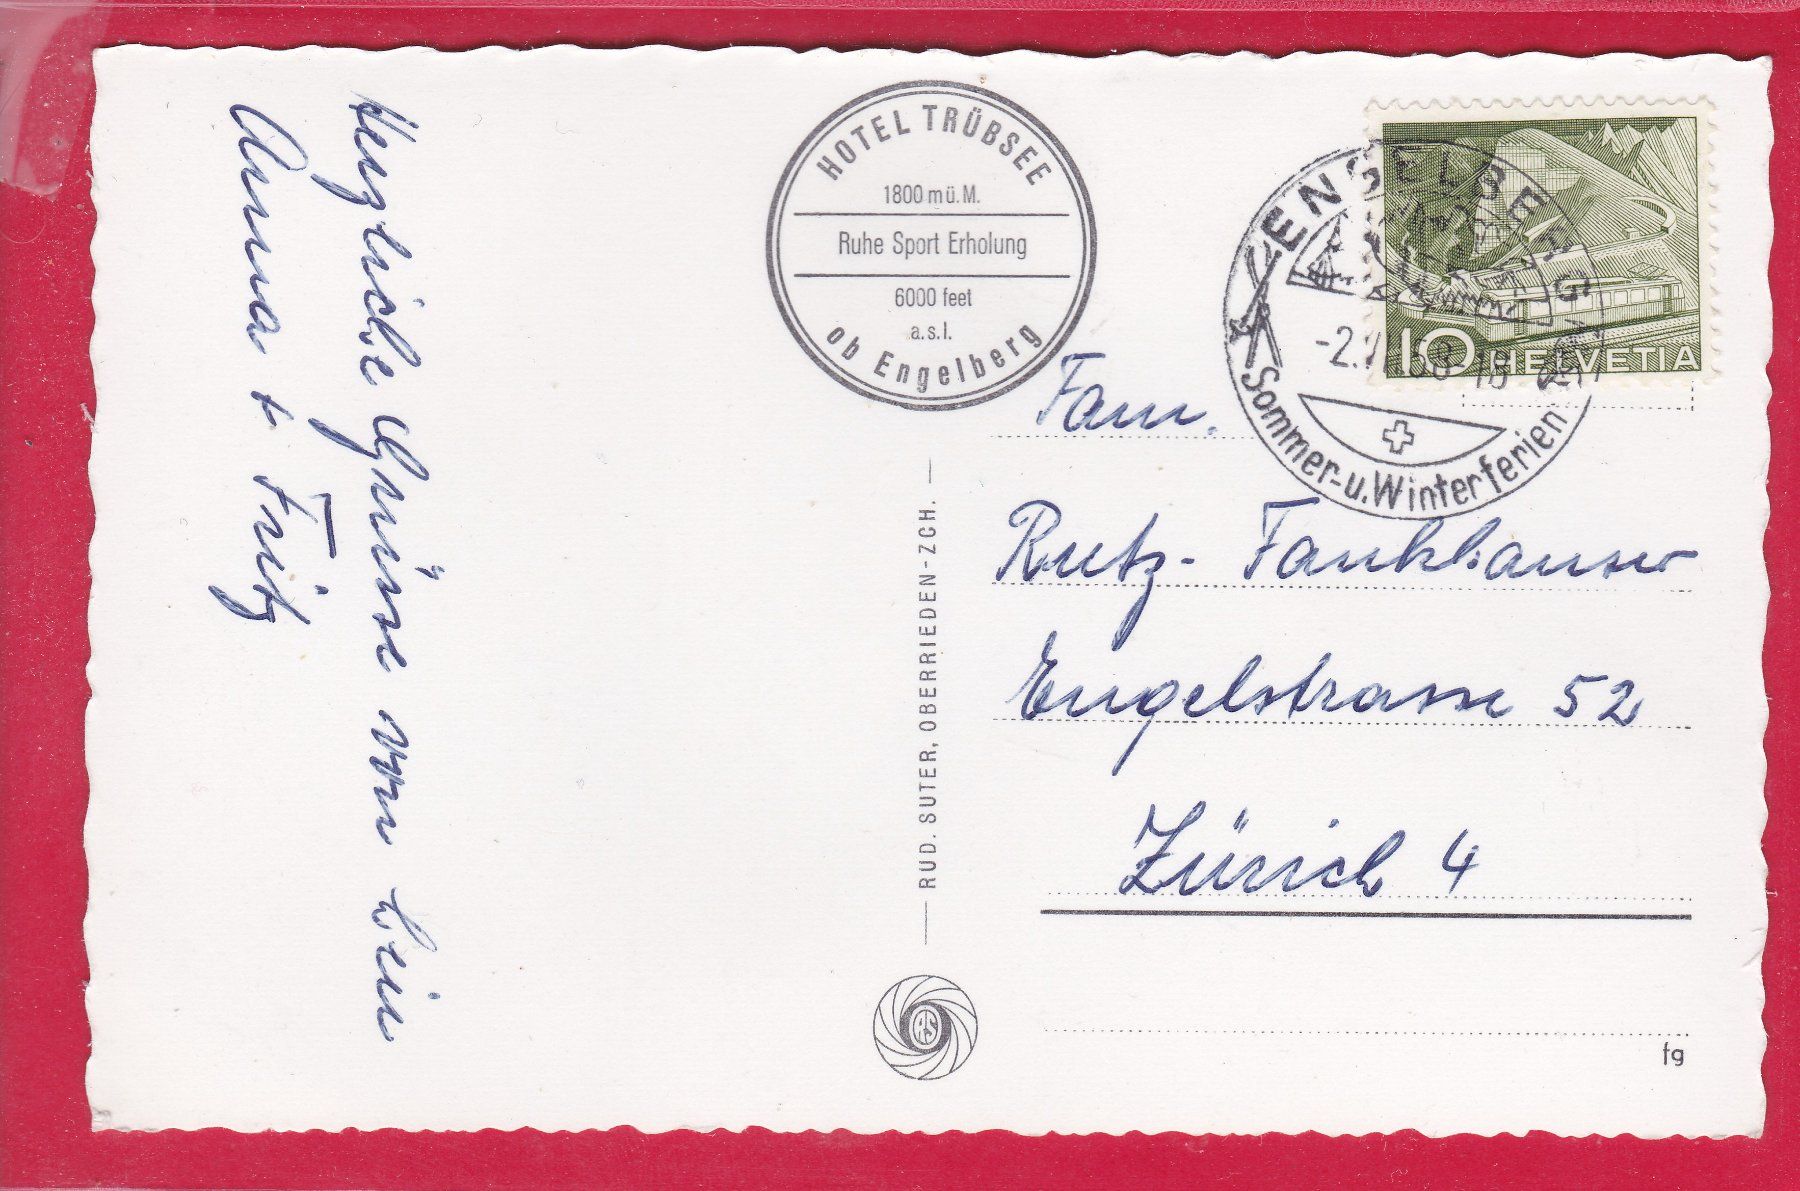 Herzliche Grüsse von
Anna + Fritz
HOTEL TRÜBSEE
1800 m ü. M.
Ruhe Sport Erholung
6000 feet
a.s.l.
ob Engelberg
ENGELBERG
-2.
Sommer- u. Winterferien
10 HELVETIA
Fam.
Rutz - Fankhauser
Engelstrasse 52
Zürich 4
RUD. SUTER, OBERRIEDEN-ZCH.
RS
fg